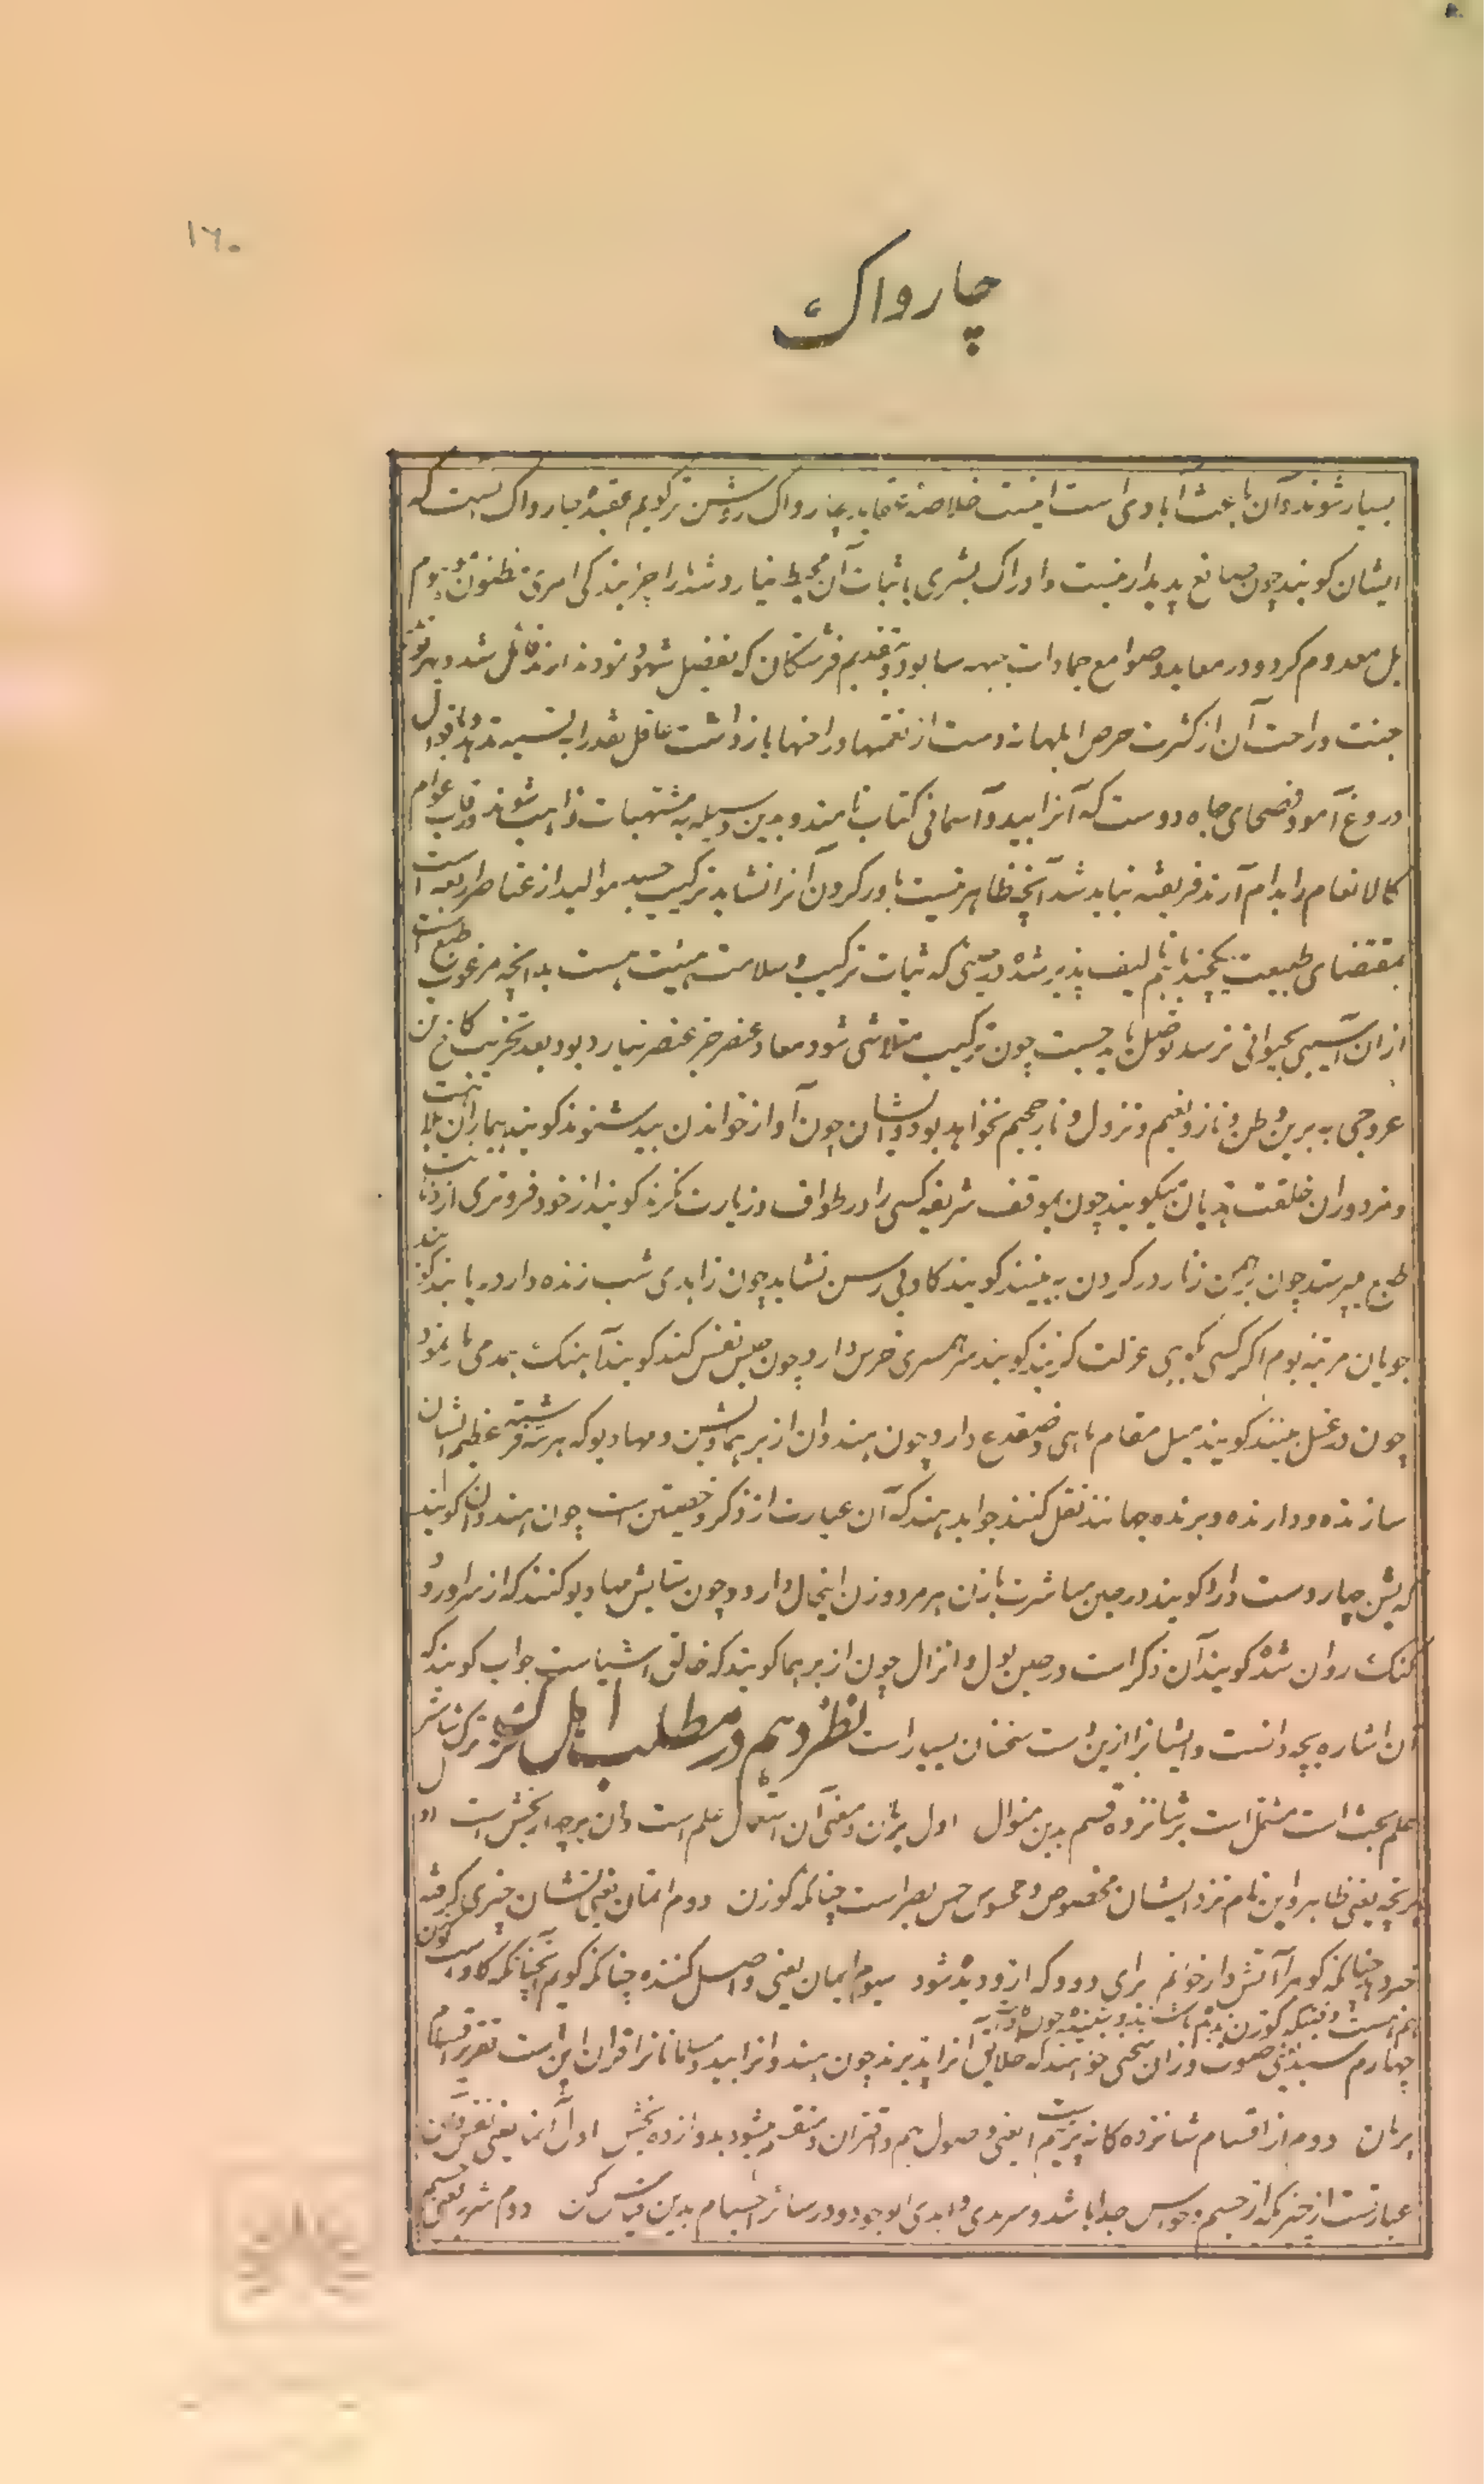 ۱۶۰
چارواک
بسیار شوند و آن باعث آبادی است اینست خلاصه عقاید چارواک روشن تر کویم عقیده چارواک اینست که
ایشان کویند چون صانع پدیدار نیست و ادراک بشری باثبات آن محیط نیارد شد ما را چرا بندکی امری مظنون موهوم
بل معدوم کرد و در معابد و صوامع جمادات جبهه سا بود و تقدیم فرشتکان که
جنت و راحت آن از کثرت حرص ابلهانه دست از نعمتها و راحتها بازداشت عاقل نقد را به نسیه ندهد و باقوال
دروغ آمود فصحای جاه دوست که آنرا بید و آسمانی کتاب نامند و بدین وسیله به مشتهیات فایز شوند و رقاب عوام
کالانعام را بدام آرند فریفته نباید شد آنچه ظاهر نیست باور کردن آنرا نشاید ترکیب جسد موالید از عناصر اربعه است
بمقتضای طبیعت یکچند باهم تالیف پذیر شده در حینی که ثبات ترکیب و سلامت هیئت هست بدانچه مرغوب طبع است
از ان آسیبی بحیوانی نرسد توصل باید جست چون ترکیب متلاشی شود معاد عنصر جز عنصر نیارد بود بعد تخریب کاخ تن
عروجی به برین وطن و ناز و نعیم و نزول و نار جحیم نخواهد بود و ایشان چون آواز خواندن بید شنوند کویند بیماران بلا
و مزدوران خلقت هذیان میکویند چون بموقف شریفه کسی را در طواف و زیارت نکرند کویند از خود فروتری از دنائت
طبع میپرستد چون برهمن زنار در کردن به بینند کویند کاو بی رسن نشاید چون زاهدی شب زنده دار دریابند کویند
جویان مرتبه بوم اکر کسی بکوهی عزلت کزیند کویند سر همسری خرس دارد چون حبس نفس کند کویند آهنک همدمی مار نمود
چون در غسل بینند کویند میل مقام ماهی و ضفدع دارد چون هندوان از برهما و بشن و مهادیو که هر سه فرشته عظیم الشان
سازنده و دارنده و برنده جهانند نقل کنند جواب دهند که آن عبارت از ذکر و خصیتین است چون هندوان کویند
که بشن چهار دست دارد کویند در حین مباشرت با زن هر مرد و زن اینحال دارد و چون ستایش مهادیو کنند که از سر او رود
کنک روان شده کویند آن ذکر است در حین بول و انزال چون از برهما کویند که خالق اشیاست جواب کویند که
آن اشاره به بچه دانست و ایشانرا ازین است سخنان بسیار است نظر دهم در مطلب اهل ترک ترک شاستر
علم بحث است مشتمل است بر شانزده قسم بدین منوال اول پرمان و معنی آن علم است و آن بر چهار بخش است اول
پرتچه یعنی ظاهر و این نام نزد ایشان مخصوص محسوس حس بصر است چنانکه کوزن دوم انمان یعنی نشان چیزی کرفته
چنانکه کوه را آتش دار خوانم برای دود که ازو دیده شود سیوم اپمان یعنی واصل کننده چنانکه کویم آنچنانکه کاو است کوزن
چهارم سبد یعنی صوت و ازان سخنی خواهند که خلایق آنرا پذیرند چون هندوانرا بید و مسلمانانرا قران این است تقریر اقسام
پرمان دوم از اقسام شانزده کانه پرمیه است یعنی وصول بهم و اقتران و منقسم میشود بدوازده بخش اول آتما یعنی نفس و آن
عبارتست از چیزیکه از جسم و حواس جدا باشد و سرمدی و ابدی الوجود و در سائر اجسام بدین دوم شریر یعنی جسم